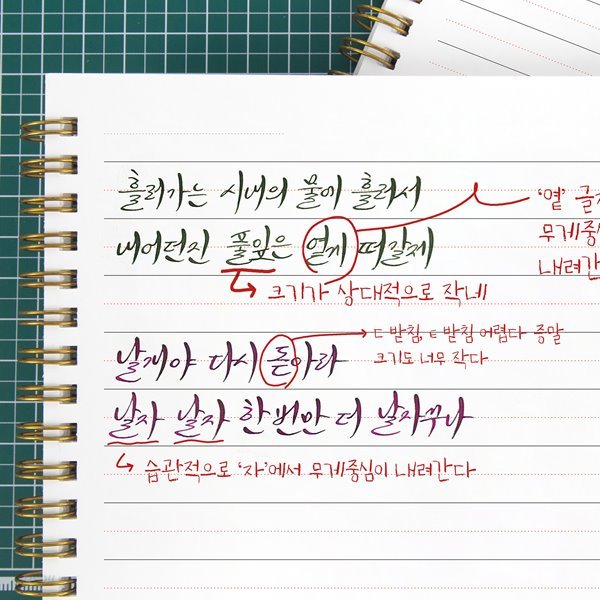 흘러가는 시내의 물에 흘러서
‘옅’
무게중심
내려간
내어던진 풀잎은 옅게 떠갈제
크기가 상대적으로 작네
ㄷ받침, ㅌ받침 어렵다 증말
크기도 너무 작다
날개야 다시 돋아라
날자 날자 한번만 더 날자꾸나
습관적으로 ‘자’에서 무게중심이 내려간다